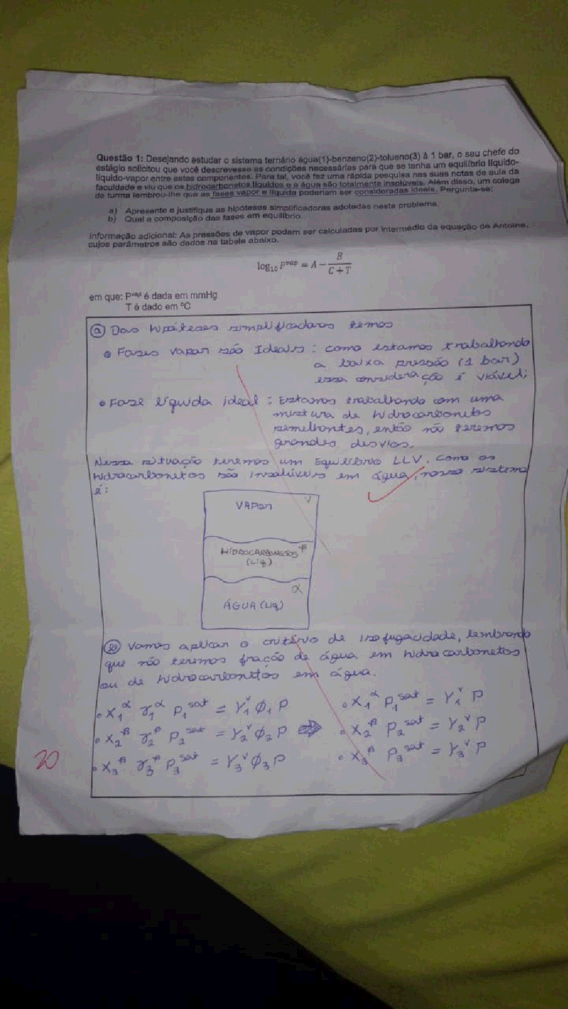 Questão 1: Desejando estudar o sistema ternário água(1)-benzeno(2)-tolueno(3) à 1 bar, o seu chefe do
estágio solicitou que você descrevesse as condições necessárias para que se tenha um equilíbrio líquido-
líquido-vapor entre estes componentes. Para tal, você fez uma rápida pesquisa nas suas notas de aula da
faculdade e viu que os hidrocarbonetos líquidos e a água são totalmente insolúveis. Além disso, um colega
de turma lembrou-lhe que as fases vapor e líquida poderiam ser consideradas ideais. Pergunta-se:
a) Apresente e justifique as hipóteses simplificadoras adotadas neste problema.
b) Qual a composição das fases em equilíbrio.
Informação adicional: As pressões de vapor podem ser calculadas por intermédio da equação de Antoine,
cujos parâmetros são dados na tabela abaixo.
log₁₀ Pᵛᵃᵖ = A − B/(C + T)
em que: Pᵛᵃᵖ é dada em mmHg
T é dado em °C
ⓐ Das hipóteses simplificadoras temos
• Fases vapor são Ideais: como estamos trabalhando
a baixa pressão (1 bar)
essa consideração é viável;
• Fase líquida ideal: Estamos trabalhando com uma
mistura de hidrocarbonetos
semelhantes, então não teremos
grandes desvios.
Nessa situação teremos um Equilíbrio LLV. Como os
hidrocarbonetos são insolúveis em água, nosso sistema
é:
VAPOR V
HIDROCARBONETOS β
(Liq)
α
ÁGUA (Liq)
ⓑ Vamos aplicar o critério de isofugacidade, lembrando
que não teremos fração de água em hidrocarbonetos
ou de hidrocarbonetos em água.
• X₁^α γ₁^α P₁^sat = Y₁^v ϕ₁ P • X₁^α P₁^sat = Y₁^v P
• X₂^β γ₂^β P₂^sat = Y₂^v ϕ₂ P ⇒ • X₂^β P₂^sat = Y₂^v P
• X₃^β γ₃^β P₃^sat = Y₃^v ϕ₃ P • X₃^β P₃^sat = Y₃^v P
20